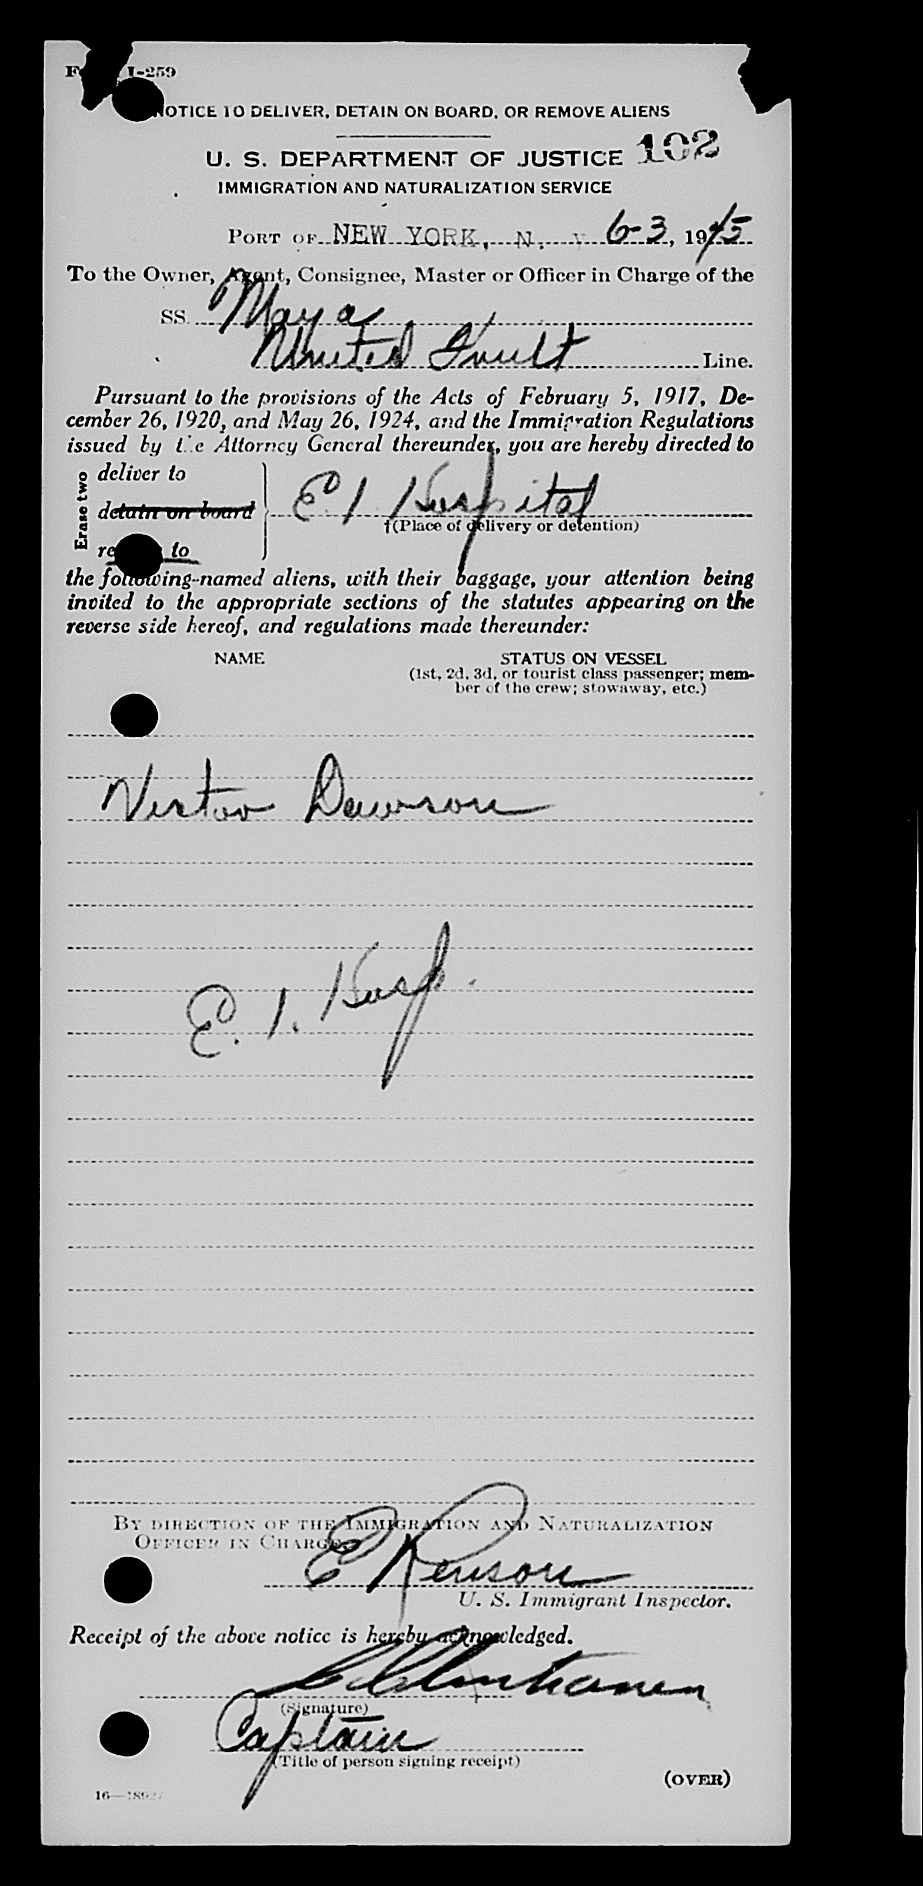 I-259
NOTICE TO DELIVER, DETAIN ON BOARD, OR REMOVE ALIENS
U. S. DEPARTMENT OF JUSTICE 102
IMMIGRATION AND NATURALIZATION SERVICE
PORT OF NEW YORK, N. Y 6-3, 1945
To the Owner, Agent, Consignee, Master or Officer in Charge of the
SS. Maya
United Fruit Line.
Pursuant to the provisions of the Acts of February 5, 1917, De-
cember 26, 1920, and May 26, 1924, and the Immigration Regulations
issued by the Attorney General thereunder, you are hereby directed to
Erase two
deliver to
detain on board
E. I. Hospital
†(Place of delivery or detention)
to
the following-named aliens, with their baggage, your attention being
invited to the appropriate sections of the statutes appearing on the
reverse side hereof, and regulations made thereunder:
NAME STATUS ON VESSEL
(1st, 2d, 3d, or tourist class passenger; mem-
ber of the crew; stowaway, etc.)
Victor Dawson
E. I. Hosp.
BY DIRECTION OF THE IMMIGRATION AND NATURALIZATION
OFFICER IN CHARGE.
E
U. S. Immigrant Inspector.
Receipt of the above notice is hereby acknowledged.
(Signature)
Captain
(Title of person signing receipt)
(OVER)